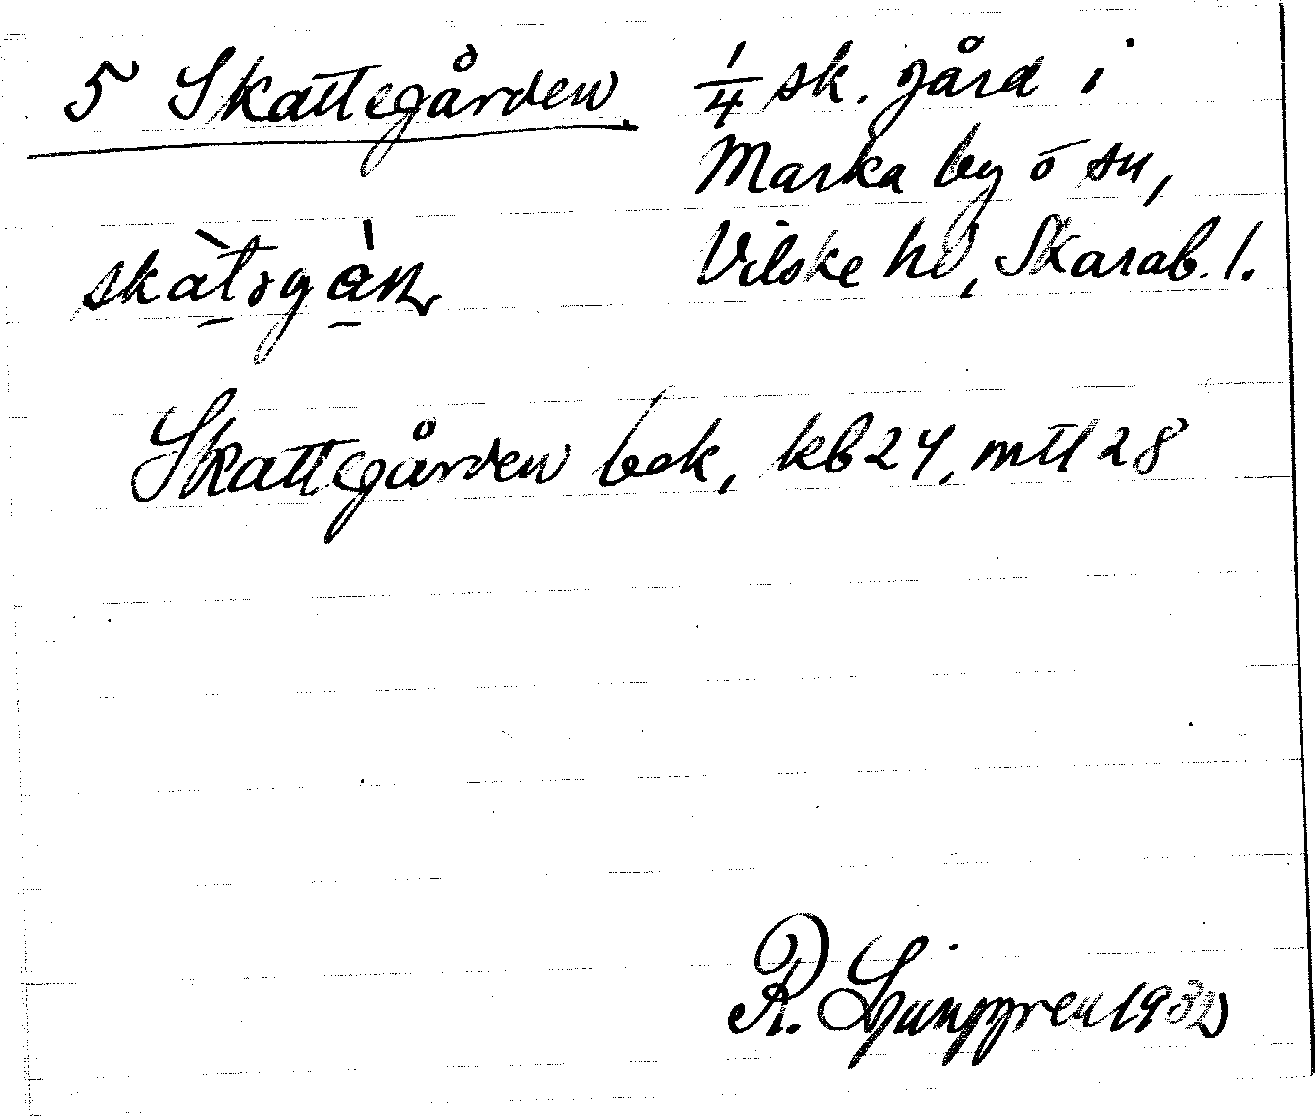 5 Skattegården
1/4 sk. gård i
Marka by o sn,
Vilske hd, Skarab. l.
Skattegården bok, kb 24, mtl 28
R. Ljunggren 1932